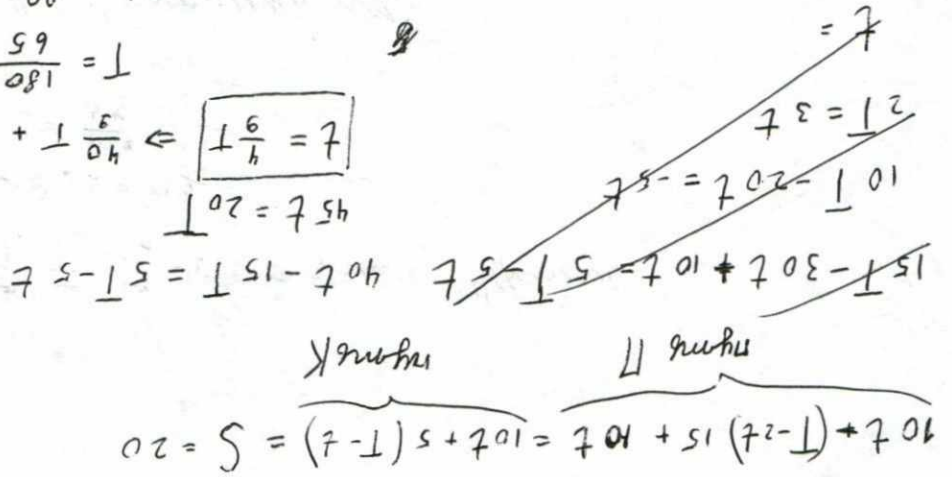 10t + (T-2t) 15 + 10t = 10t + 5 (T-t) = S = 20
путь П путь К
15T - 30t + 10t = 5T - 5t 40t - 15T = 5T - 5t
10T - 20t = -5t 45t = 20T
2T = 3t t = 4/9 T ⇒ 40/9 T +
t = T = 180/65